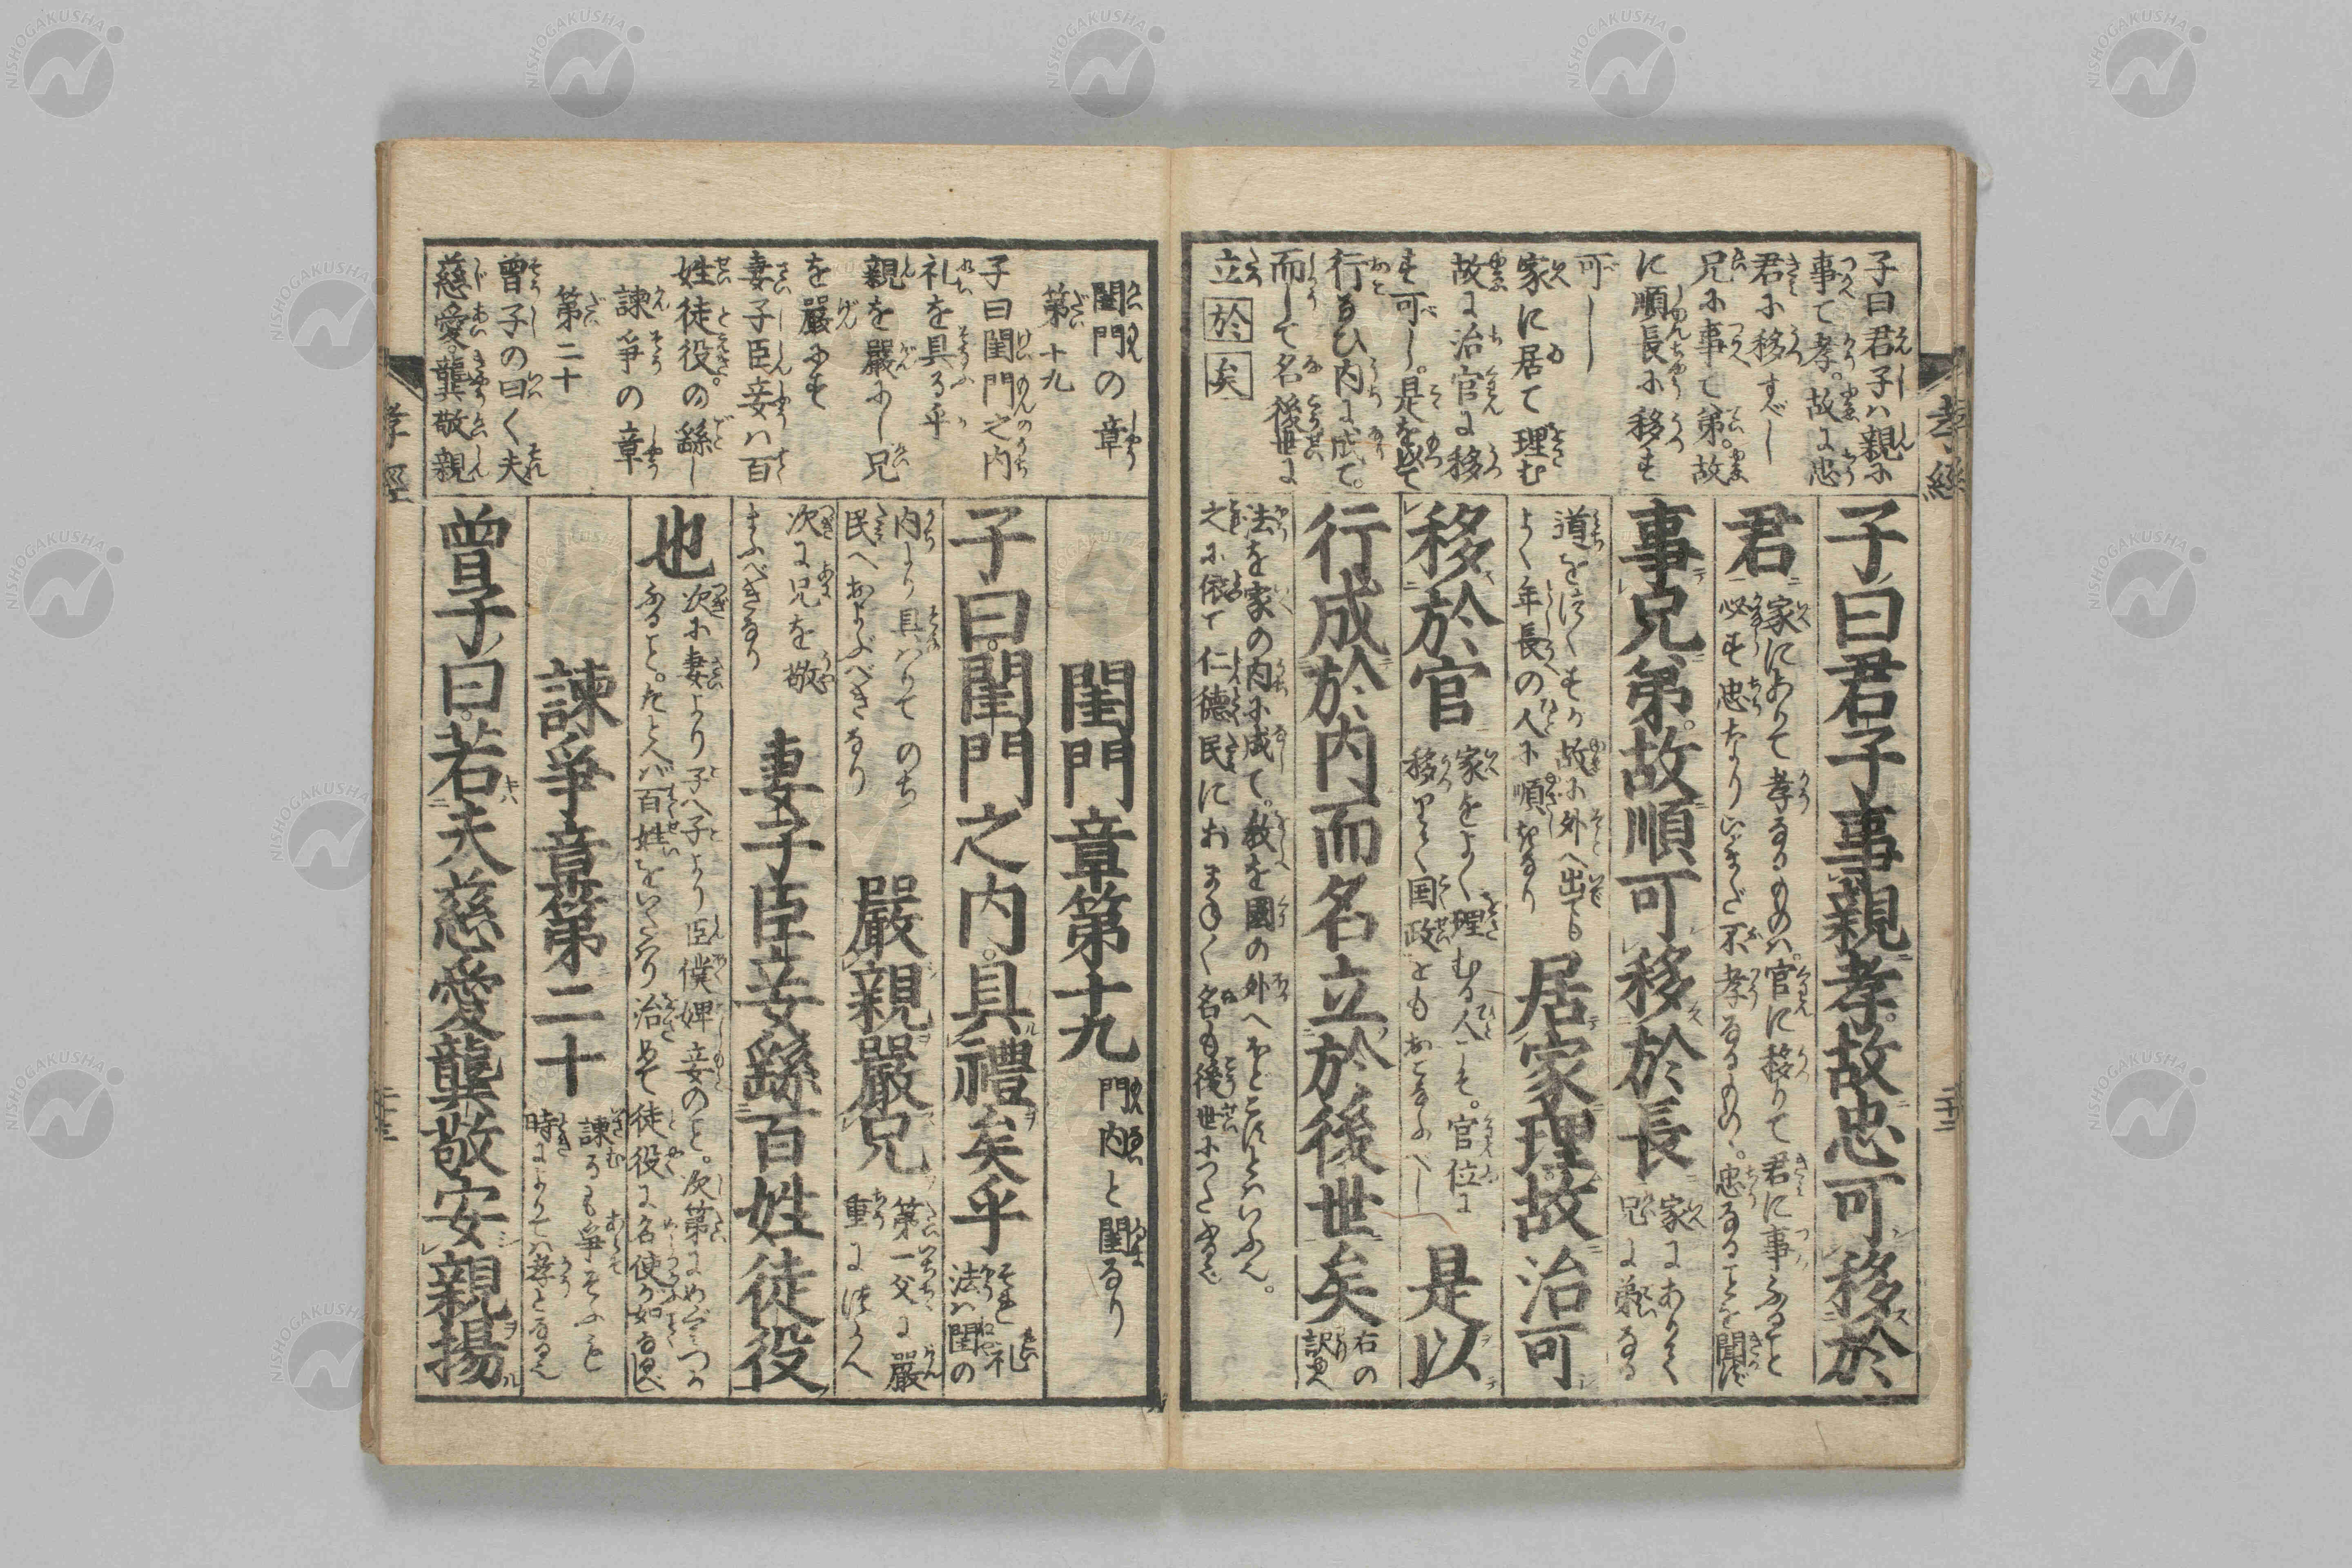 子曰君子ハ親に
事て孝。故に忠
君に移すべし
兄に事て弟。故
に順長に移す
可し
家に居て理む
故に治官に移
す可し。是を以て
行ひ内に成て。
而して名後世に
立 於 矣
子曰君子事親孝。故忠可移於
君
家にありて孝なるものハ。官に移りて君に事ふること
必す忠なり いまだ不孝なるもの。忠なることを聞ず
事兄弟。故順可移於長
家にありてよく
兄に弟なる
道をつくすが故に外へ出ても
よく年長の人に順ふなり
居家理。故治可
移於官
家をよく理むる人ハそ。官位に
是以
行成於内而名立於後世矣
右の
訳也
法を家の内に成て。教を國の外へ
之に依て仁徳民におよ
孝經
二十三
閨門の章
第十九
子曰閨門之内
礼を具る乎
親を嚴にし兄
を嚴にす
妻子臣妾ハ百
姓徒役の繇し
諫爭の章
第二十
曾子の曰く夫
慈愛。龔敬親
閨門章第十九
門内と閨なり
子曰。閨門之内。具禮矣乎
礼
法ハ閨の
内より具ハりてのち
民へおよぶべきなり
嚴親嚴兄
第一父に嚴
重につかへ
次に兄を敬
まふべきなり
妻子臣妾繇百姓徒役
也
次に妻より子へ子より臣僕婢妾のこと。次第に
なること。たとへバ百姓をいたハり治めて徒役に
諫爭章第二十
諫るも爭そふも
時によりてハ孝となるなり
曾子曰。若夫慈愛龔敬安親揚
孝經